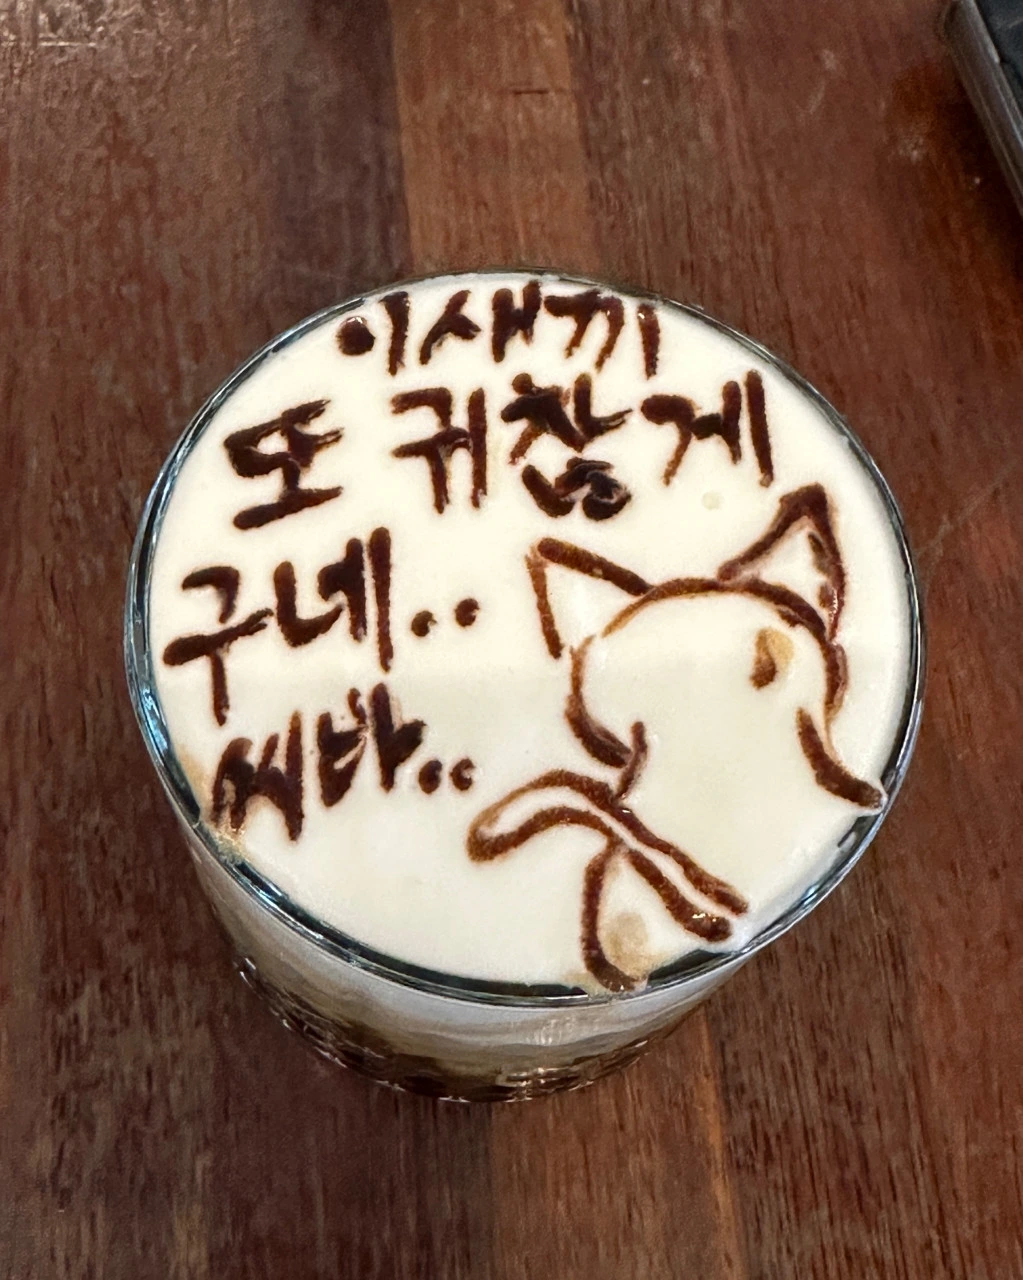 이새끼
또 귀찮게
구네..
씨바..